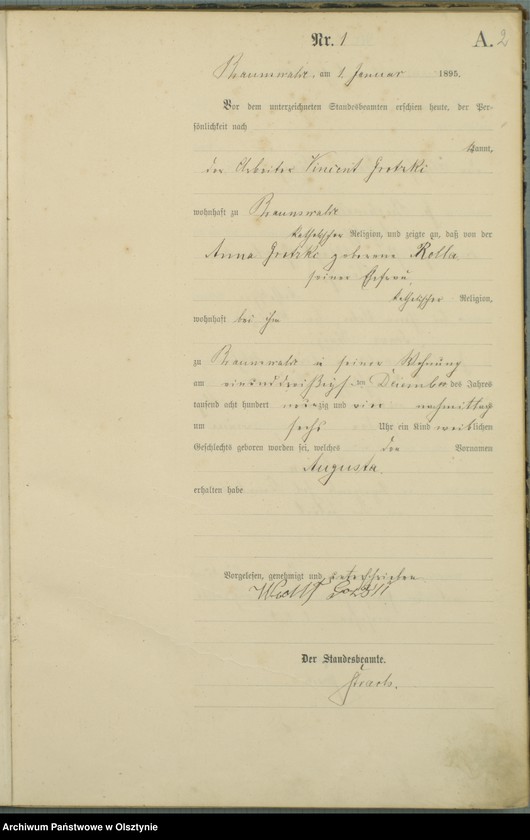 Nr. 1
A. 2
Braunswalde, am 1. Januar 1895.
Vor dem unterzeichneten Standesbeamten erschien heute, der Per-
sönlichkeit nach
kannt,
der Arbeiter Vincent Grotzki
wohnhaft zu Braunswalde
katholischer Religion, und zeigte an, daß von der
Anna Grotzki geborene Kolla
seiner Ehefrau
katholischer Religion,
wohnhaft bei ihm
zu Braunswalde in seiner Wohnung
am einunddreißigsten Dezember des Jahres
tausend acht hundert neunzig und vier nachmittags
um sechs Uhr ein Kind weiblichen
Geschlechts geboren worden sei, welches den Vornamen
Augusta
erhalten habe
Vorgelesen, genehmigt und unterschrieben
Der Standesbeamte.
Archiwum Państwowe w Olsztynie